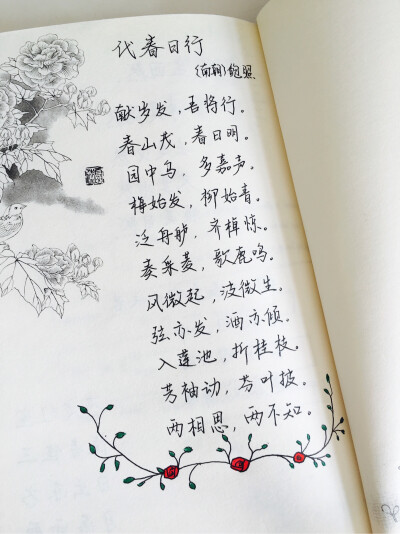 代春日行
(南朝)鲍照
献岁发，吾将行。
春山茂，春日明。
园中鸟，多嘉声。
梅始发，柳始青。
泛舟舻，齐棹惊。
奏采菱，歌鹿鸣。
风微起，波微生。
弦亦发，酒亦倾。
入莲池，折桂枝。
芳袖动，芬叶披。
两相思，两不知。